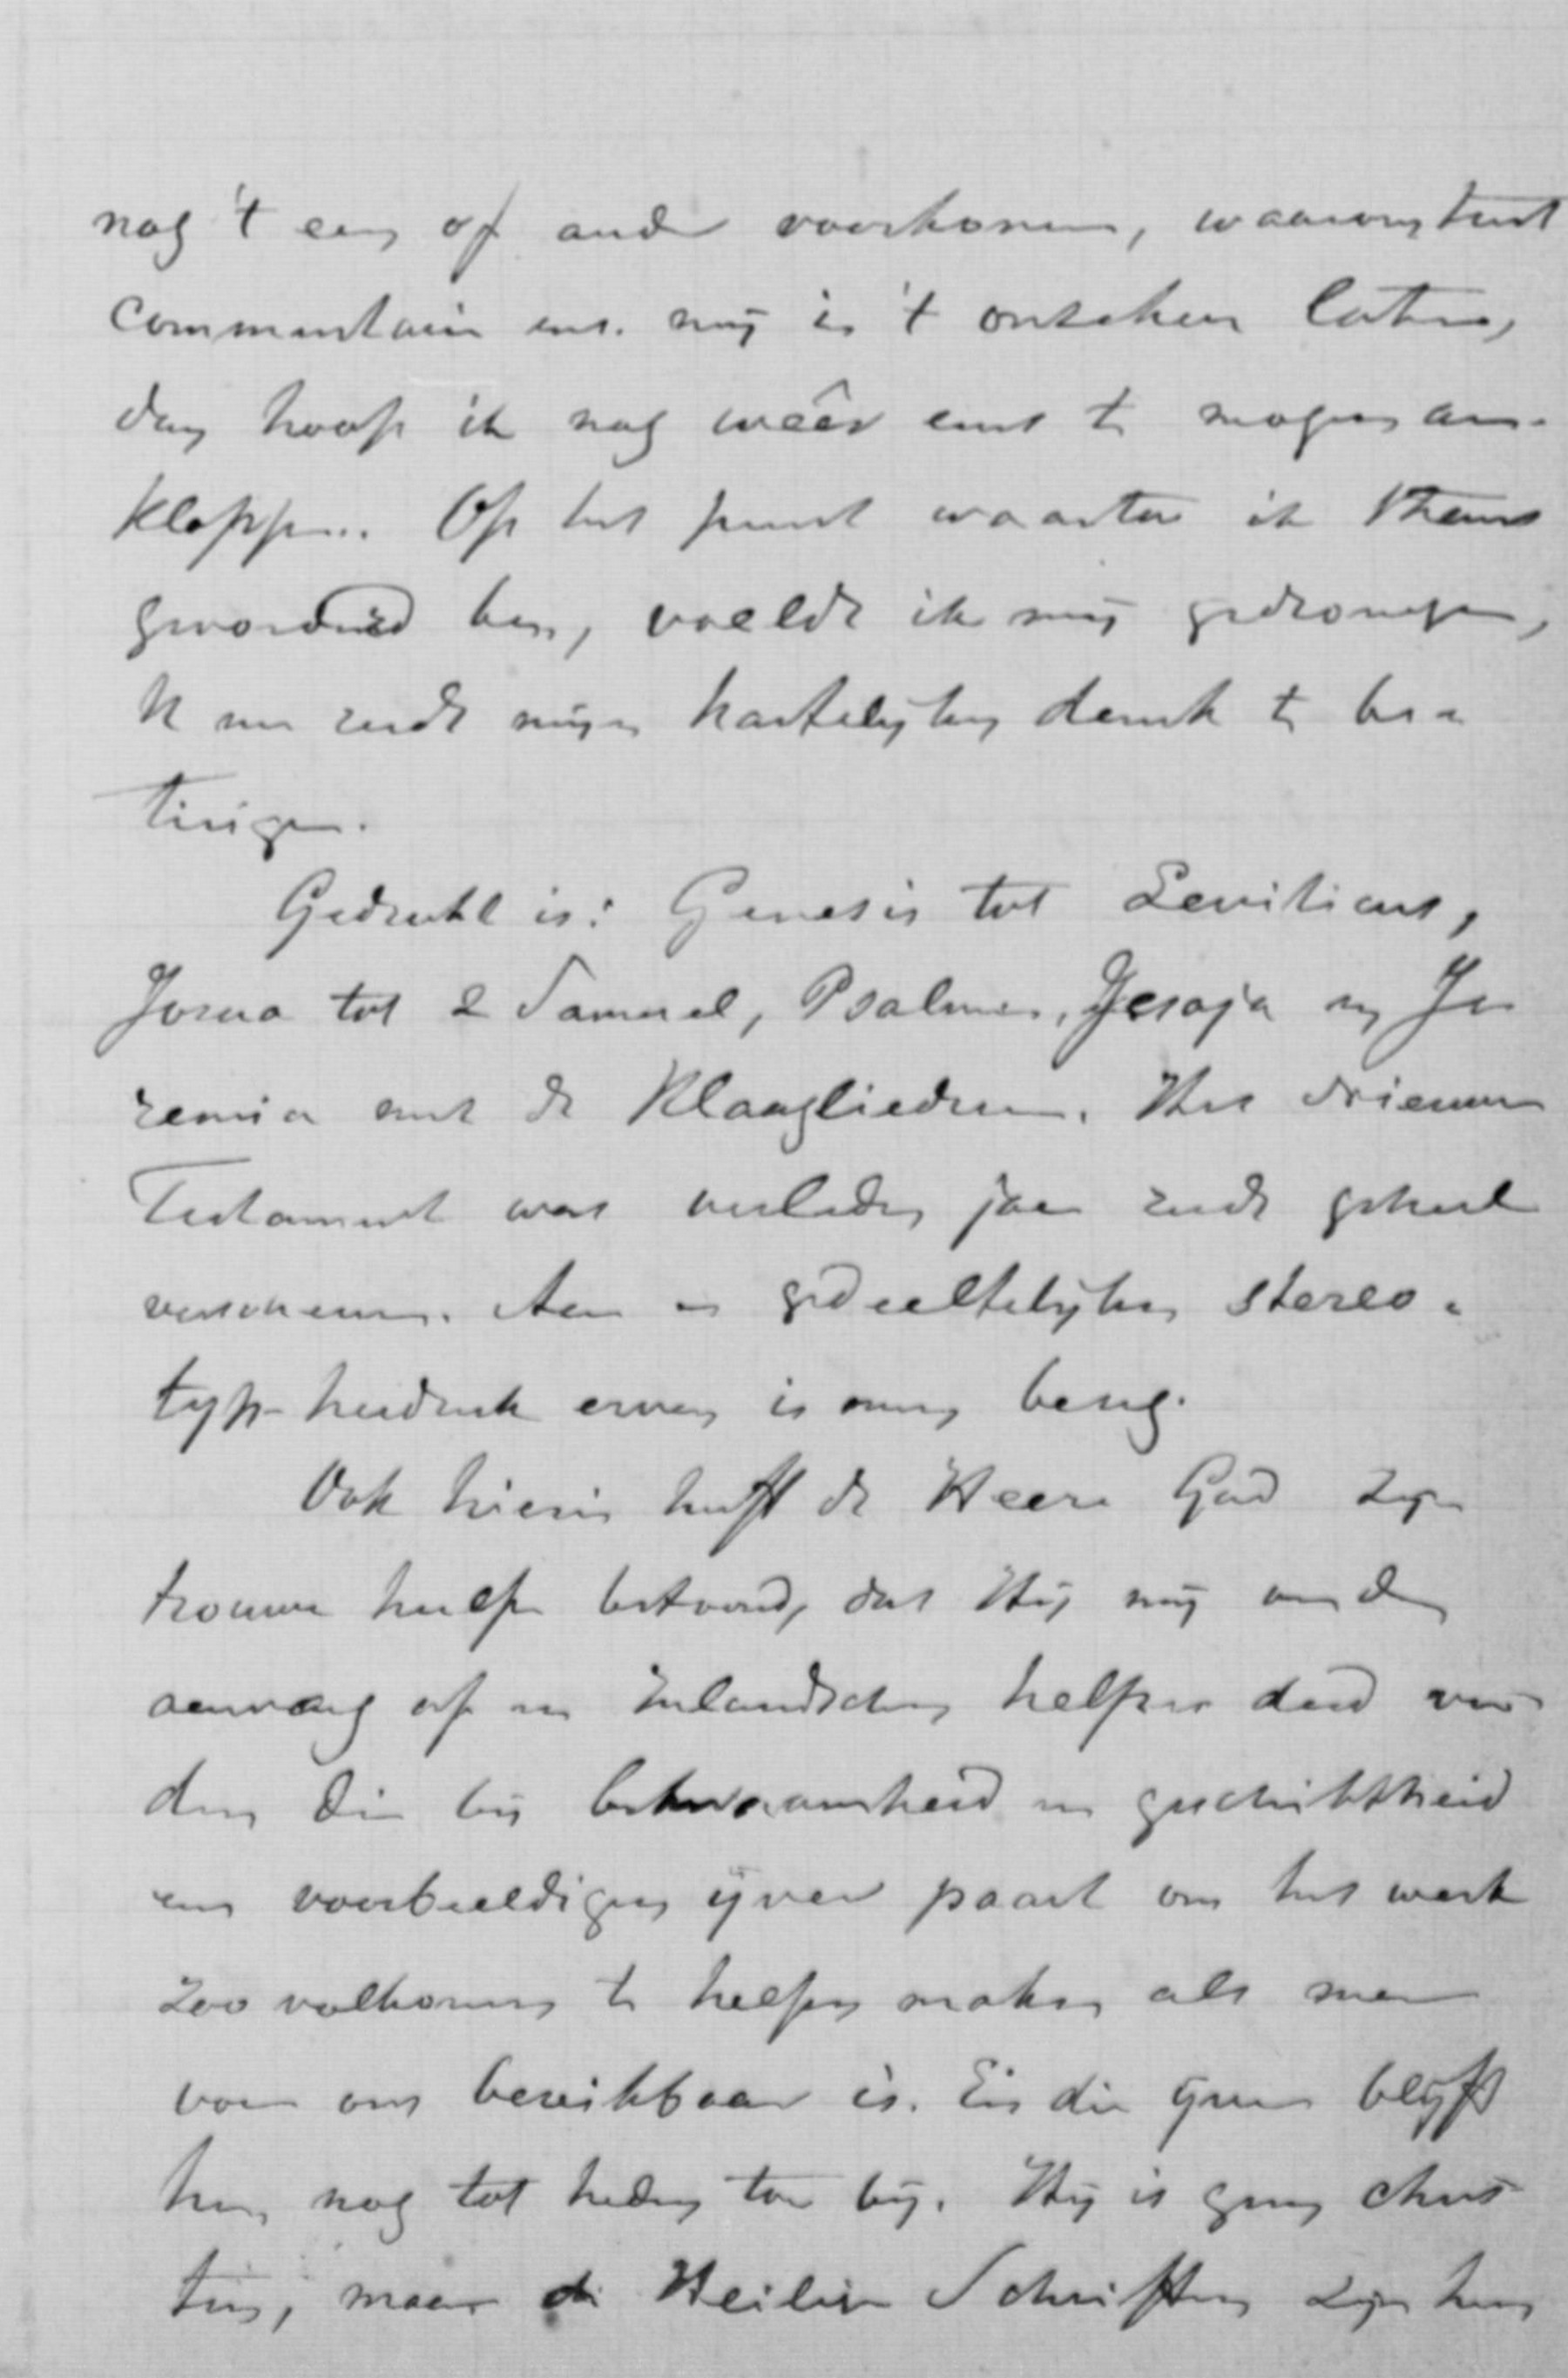 nog 't een of ander voorkomen, waaromtrent
commentaar enz. mij in 't onzekere laten,
dan hoop ik nog wêêr eens te mogen aan-
kloppen. Op het punt waartoe ik thans
gevorderd ben, voelde ik mij gedrongen,
U mijn hartelijken dank te be-
tuigen.
Gedrukt is: Genesis tot Leviticus,
Jozua tot 2 Samuel, Psalmen, Jesaja en Je
remia met de Klaagliederen. Het Nieuwe
Testament was verleden jaar reeds geheel
verschenen. Aan een gedeeltelijken stereo-
typ-herdruk ervan is men bezig.
Ook hierin heeft de Heere God zijn
trouwe hulp betoond, dat Hij mij van den
aanvang af een Inlandschen helper deed vin
den die bij bekwaamheid en geschiktheid
een voorbeeldigen ijver paart om het werk
zoo volkomen te helpen maken als maar
voor ons bereikbaar is. En die ijver blijft
hem nog tot heden toe bij. Hij is geen chris
ten, maar de Heilige Schriften zijn hem